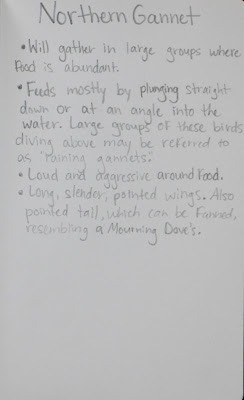 Northern Gannet
• Will gather in large groups where
food is abundant.
• Feeds mostly by plunging straight
down or at an angle into the
water. Large groups of these birds
diving above may be referred to
as "raining gannets."
• Loud and aggressive around food.
• Long, slender, pointed wings. Also
pointed tail, which can be fanned,
resembling a Mourning Dove's.